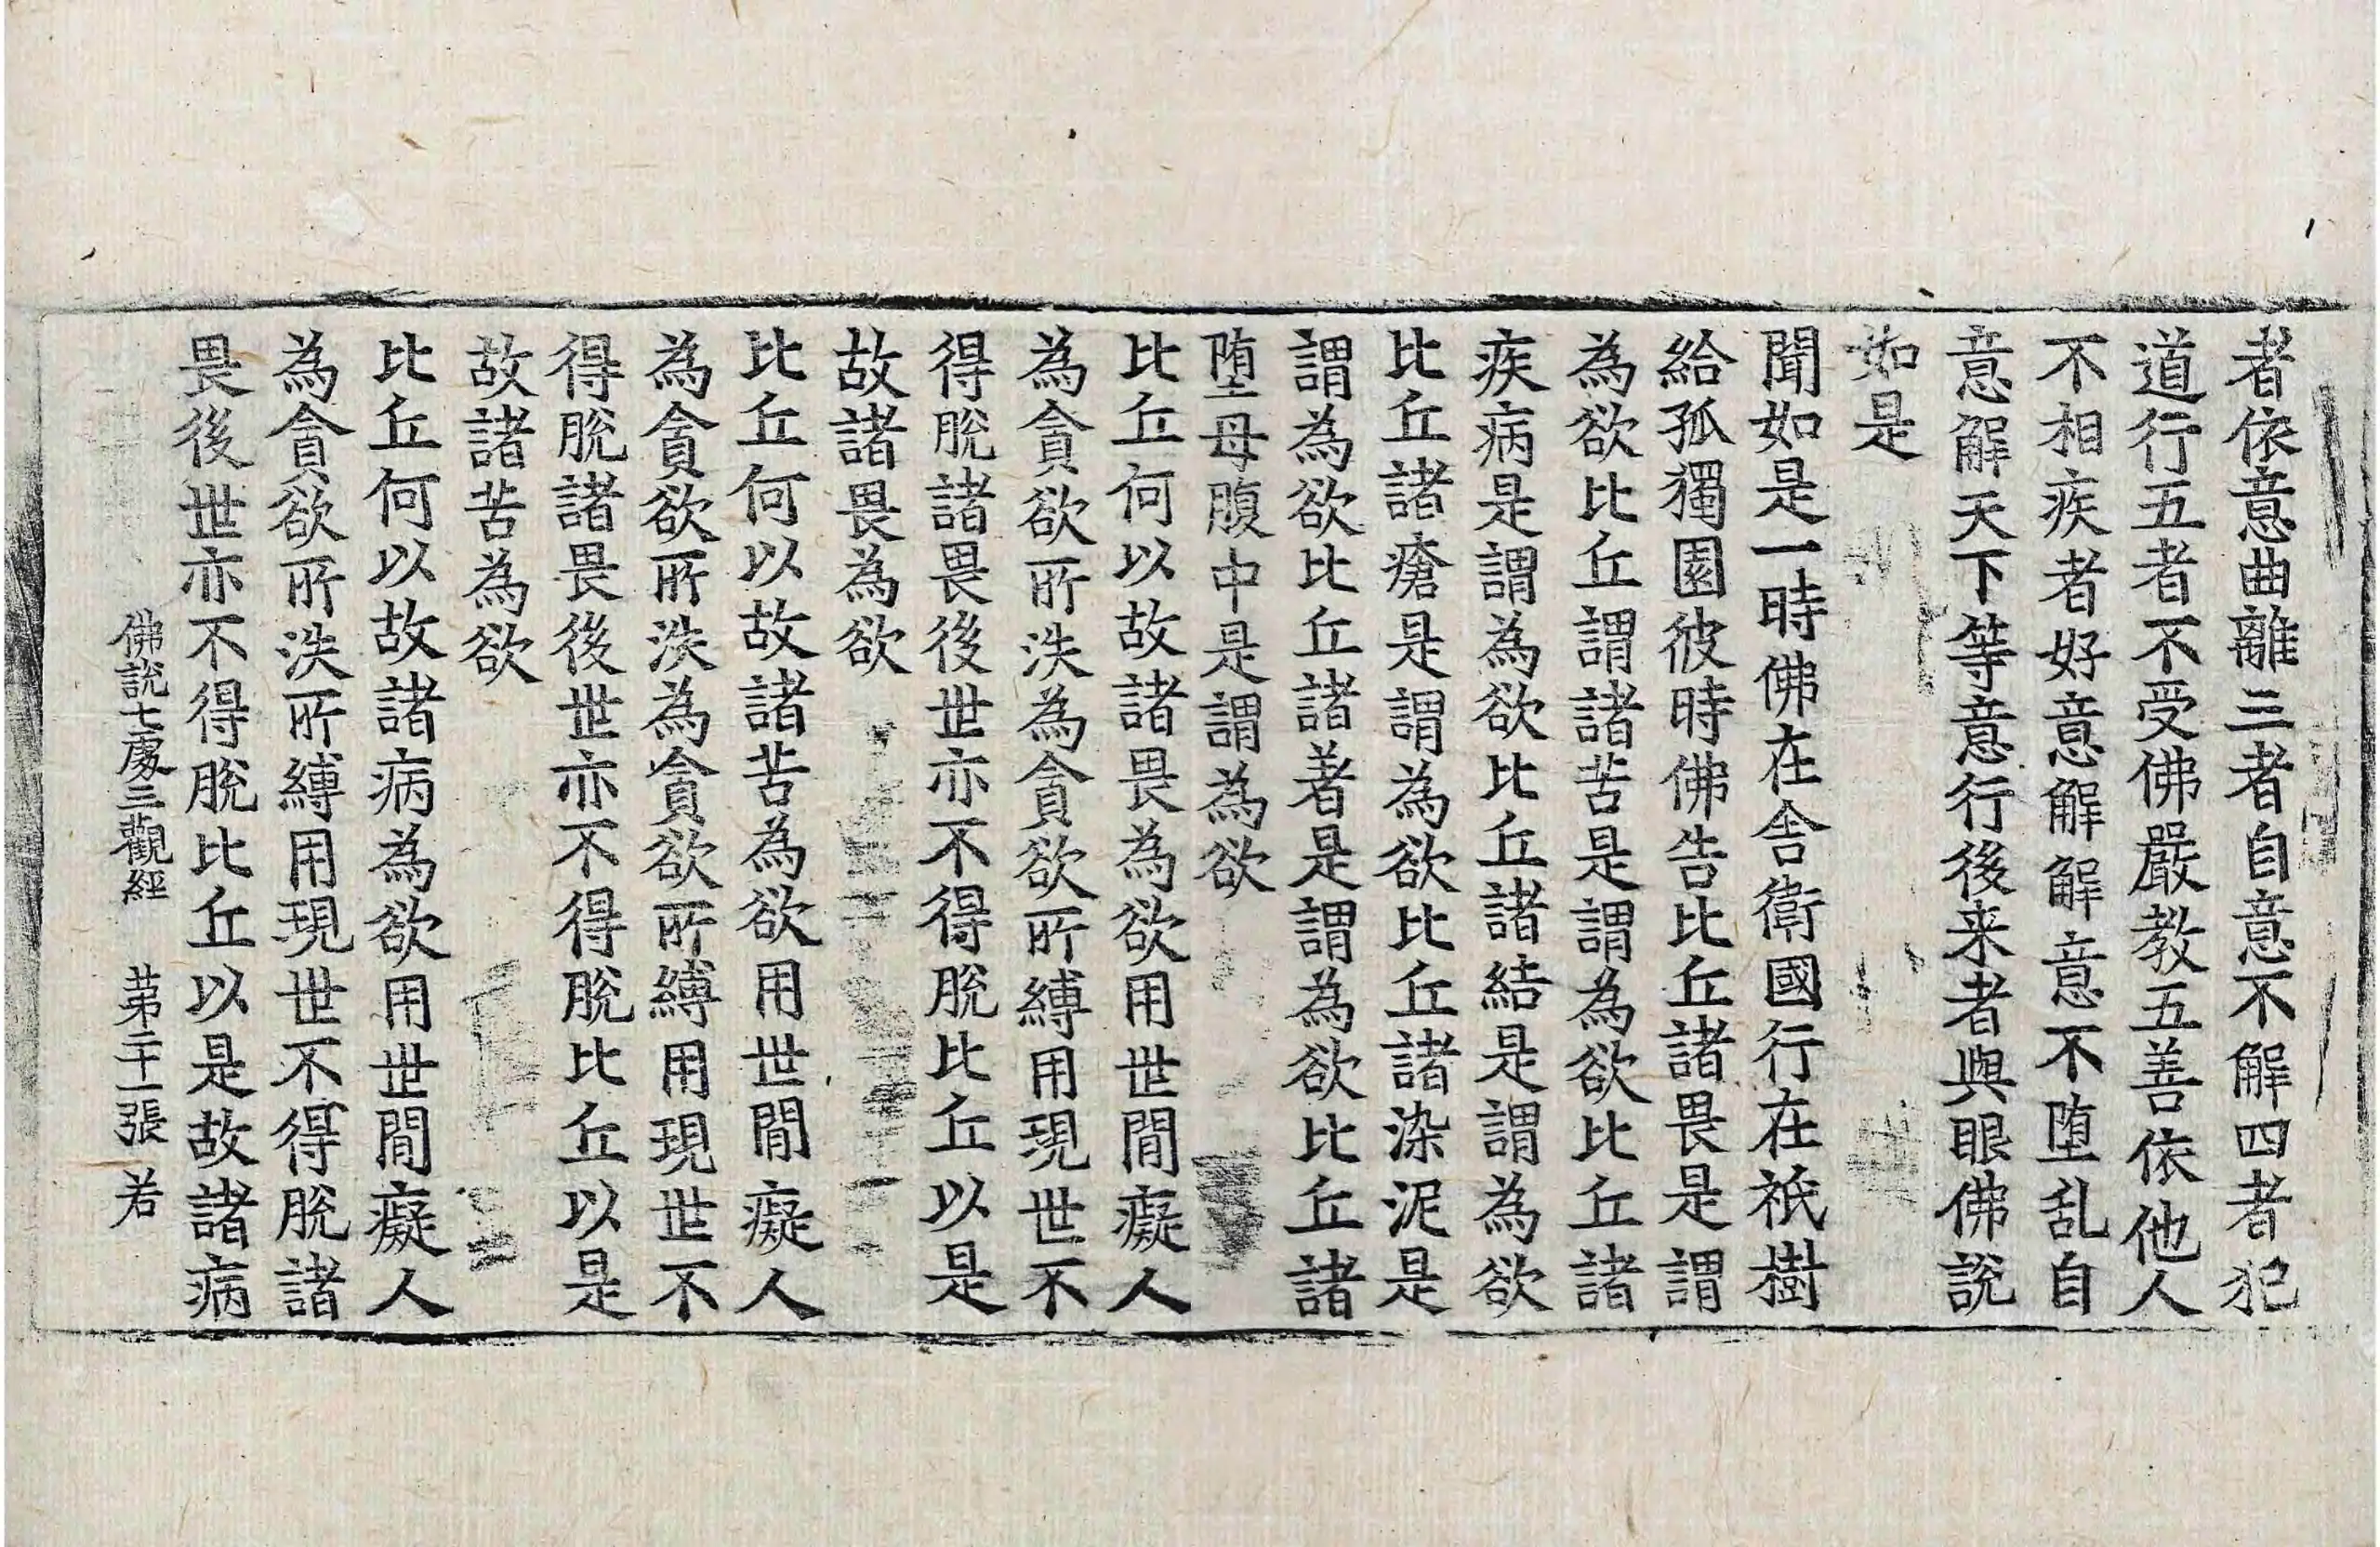 者依意曲離三者自意不解四者犯
道行五者不受佛嚴教五善依他人
不相疾者好意解解意不堕乱自
意解天下等意行後来者與眼佛説
如是
聞如是一時佛在舎衛國行在祇樹
給孤獨園彼時佛告比丘諸畏是謂
為欲比丘謂諸苦是謂為欲比丘諸
疾病是謂為欲比丘諸結是謂為欲
比丘諸瘡是謂為欲比丘諸染泥是
謂為欲比丘諸著是謂為欲比丘諸
堕母腹中是謂為欲
比丘何以故諸畏為欲用世間癡人
為貪欲所泆為貪欲所縛用現世不
得脫諸畏後世亦不得脫比丘以是
故諸畏為欲
比丘何以故諸苦為欲用世間癡人
為貪欲所泆為貪欲所縛用現世不
得脫諸畏後世亦不得脫比丘以是
故諸苦為欲
比丘何以故諸病為欲用世間癡人
為貪欲所泆所縛用現世不得脫諸
畏後世亦不得脫比丘以是故諸病
佛說七處三觀經 苐二十一張 若